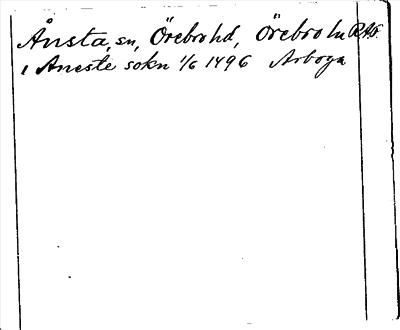 Ånsta, sn, Örebro hd, Örebro ln RAG.
i Aneste sokn 1/6 1496 Arboga